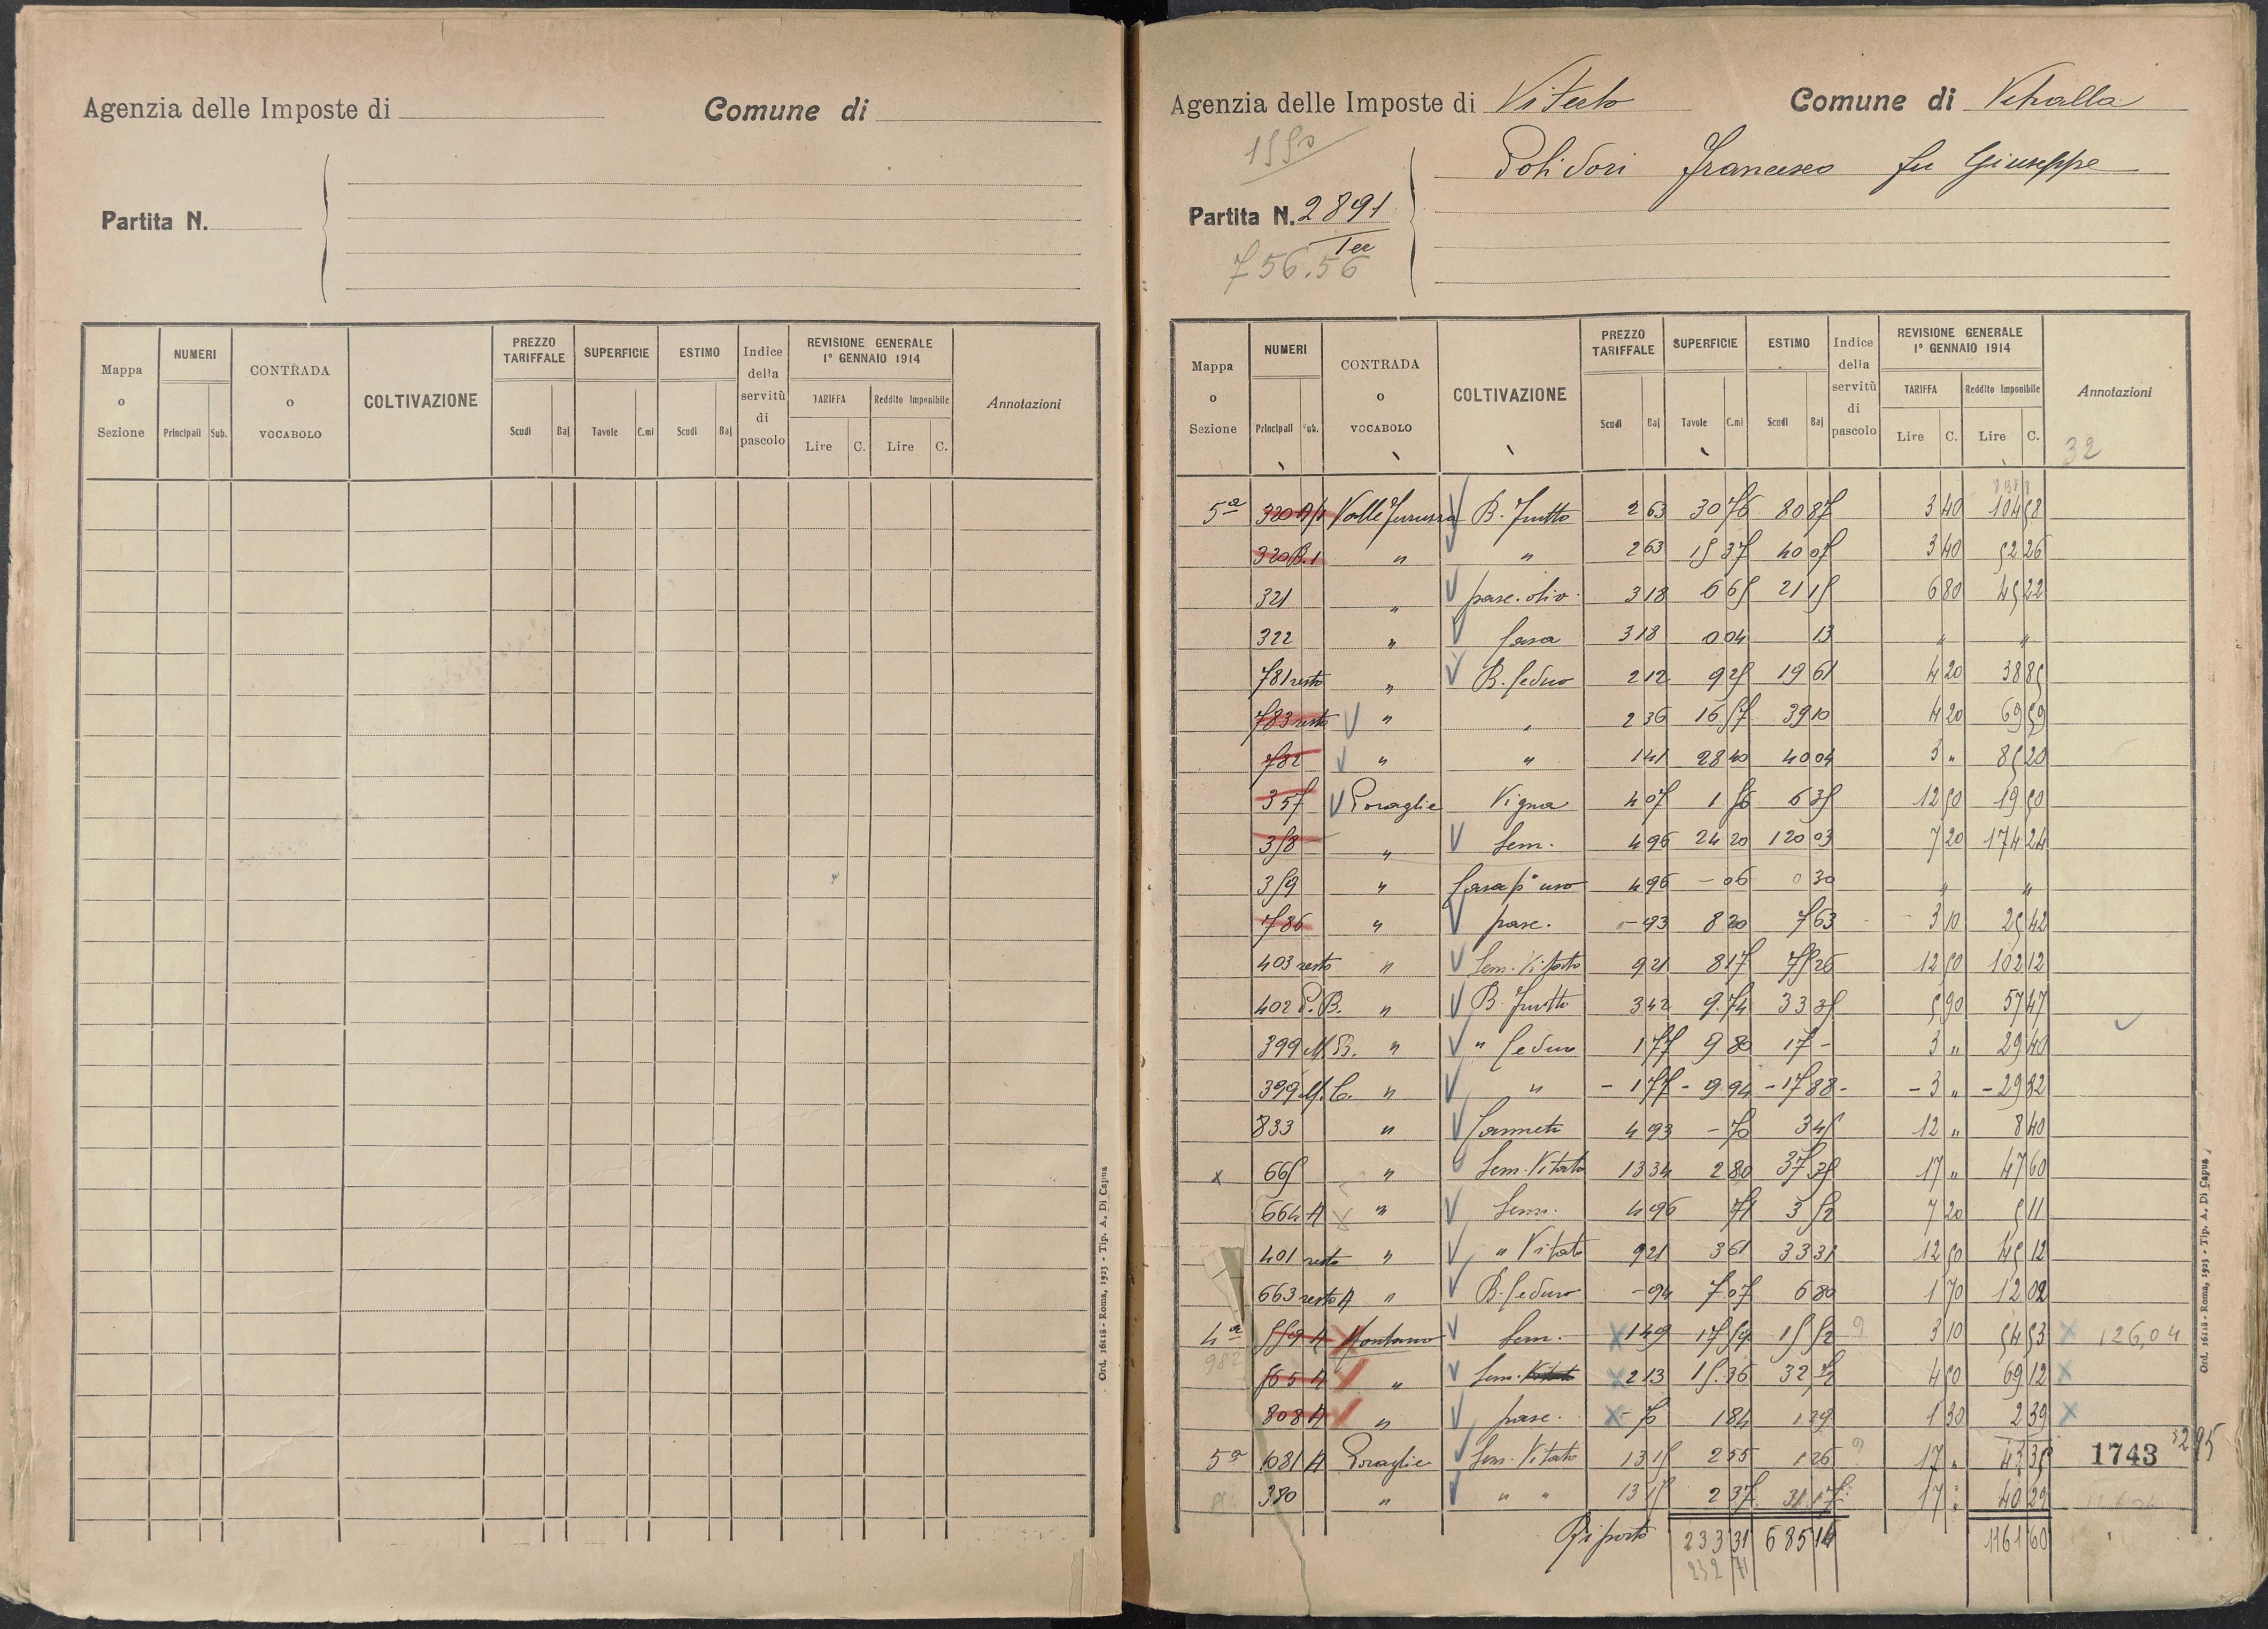 Agenzia delle Imposte di
Comune di
Partita N.
Mappa o Sezione
NUMERI
Principali Sub.
CONTRADA o VOCABOLO
COLTIVAZIONE
PREZZO TARIFFALE
Scudi Baj
SUPERFICIE
Tavole C.mi
ESTIMO
Scudi Baj
Indice della servitù di pascolo
REVISIONE GENERALE 1° GENNAIO 1914
TARIFFA Reddito Imponibile
Lire C. Lire C.
Annotazioni
Ord. 16118 - Roma, 1923 - Tip. A. Di Capua
Agenzia delle Imposte di Viterbo Comune di Vetralla
Polidori Francesco fu Giuseppe
Partita N. 2891
Ter
756.56
Mappa o Sezione
NUMERI
Principali Sub.
CONTRADA o VOCABOLO
COLTIVAZIONE
PREZZO TARIFFALE
Scudi Baj
SUPERFICIE
Tavole C.mi
ESTIMO
Scudi Baj
Indice della servitù di pascolo
REVISIONE GENERALE 1° GENNAIO 1914
TARIFFA Reddito Imponibile
Lire C. Lire C.
Annotazioni
32
5a 320 A/1 Valle B. frutto 2 63 30 76 80 87 3 40 104 58
320 B.1 " " 2 63 15 37 40 07 3 40 52 26
321 " pasc. oliv. 3 18 6 65 21 15 6 80 45 22
322 " Casa 3 18 0 04 13 " "
781 resto " B. Ceduo 2 12 9 25 19 61 4 20 38 85
783 resto " " 2 36 16 57 39 10 4 20 69 59
782 " " 1 41 28 40 40 04 3 " 85 20
357 Poraglie Vigna 4 07 1 56 6 35 12 50 19 50
358 " Sem. 4 96 24 20 120 03 7 20 174 24
359 " Casa p° uso 4 96 - 06 0 30 " "
786 " pasc. - 93 8 20 7 63 3 10 25 42
403 resto " Sem. 9 21 8 17 75 26 12 50 102 12
402 P.B. " B. frutto 3 42 9.74 33 35 5 90 57 47
399 M B. " " Ceduo 1 77 9 80 17 - 3 " 29 40
399 M. C. " " - 1 77 - 9.94 - 17 88 - - 3 " - 29 82
833 " Canneto 4 93 - 70 3 45 12 " 8 40
x 665 " Sem. Vitato 13 34 2 80 37 35 17 " 47 60
664 A " Sem. 4 96 71 3 52 7 20 5 11
401 resto " " Vitato 9 21 3 61 33 31 12 50 45 12
663 resto A " B. Ceduo - 94 7 07 6 80 1 70 12 02
4a 559 A Sem. 1 49 17 59 15 52 3 10 54 53 126,04
982
565 A " Sem. 2 13 15.36 32 72 4 50 69 12
808 A " pasc. - 70 1 84 1 29 1 30 2 39
5a 1081 A Poraglie Sem. Vitato 13 15 2 55 1 26 17 " 43 35 1743
380 " " " 13 15 2 37 31 17 17 " 40 29
Riporto 233 31 685 14 1161 60
232 71
Ord. 16118 - Roma, 1923 - Tip. A. Di Capua